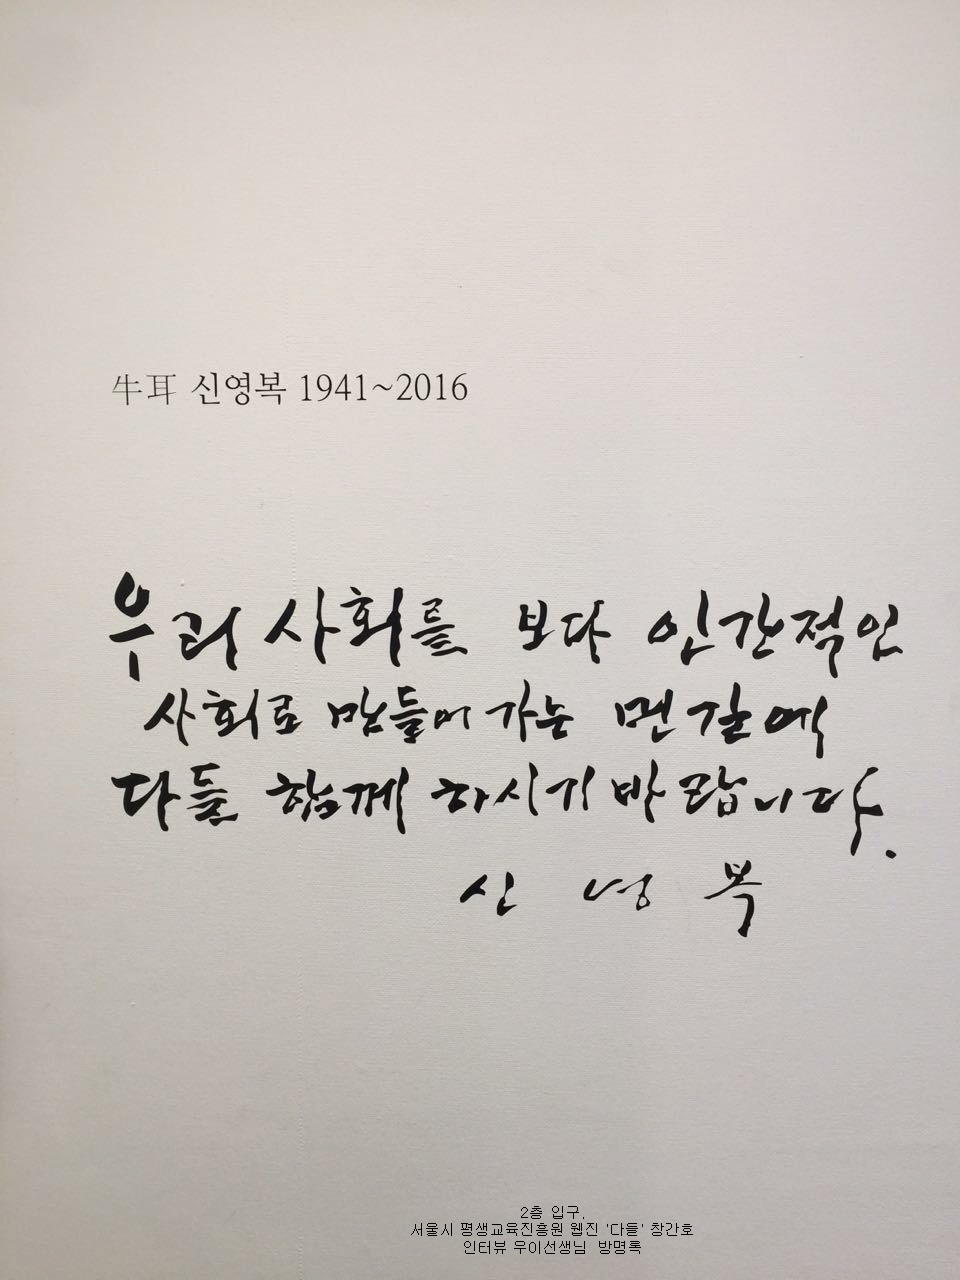 牛耳 신영복 1941~2016
우리 사회를 보다 인간적인
사회로 만들어 가는 먼 길에
다들 함께 하시기 바랍니다.
신 영 복
2층 입구.
서울시 평생교육진흥원 웹진 '다들' 창간호
인터뷰 우이선생님 방명록